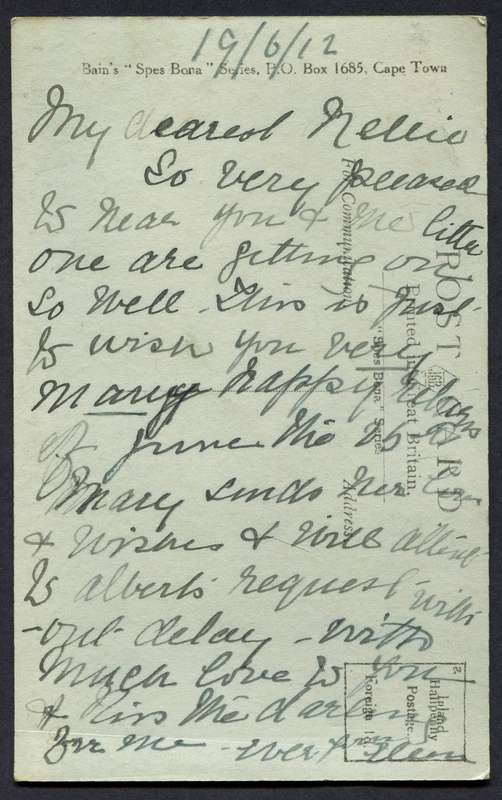 19/6/12
Bain's "Spes Bona" Series, P.O. Box 1685, Cape Town
My dearest Nellie
So very pleased
to hear you & the little
one are getting on
so well. This is just
to wish you very
many happy returns
of June the
Mary sends her love
& wishes & will attend
to Alberts request with
-out delay - with
much love to you
& kiss the darling
for me - Ever
POST CARD
Printed in Great Britain,
"Spes Bona" Series
For Communication
Address
Inland
Halfpenny
Postage
Foreign 1d